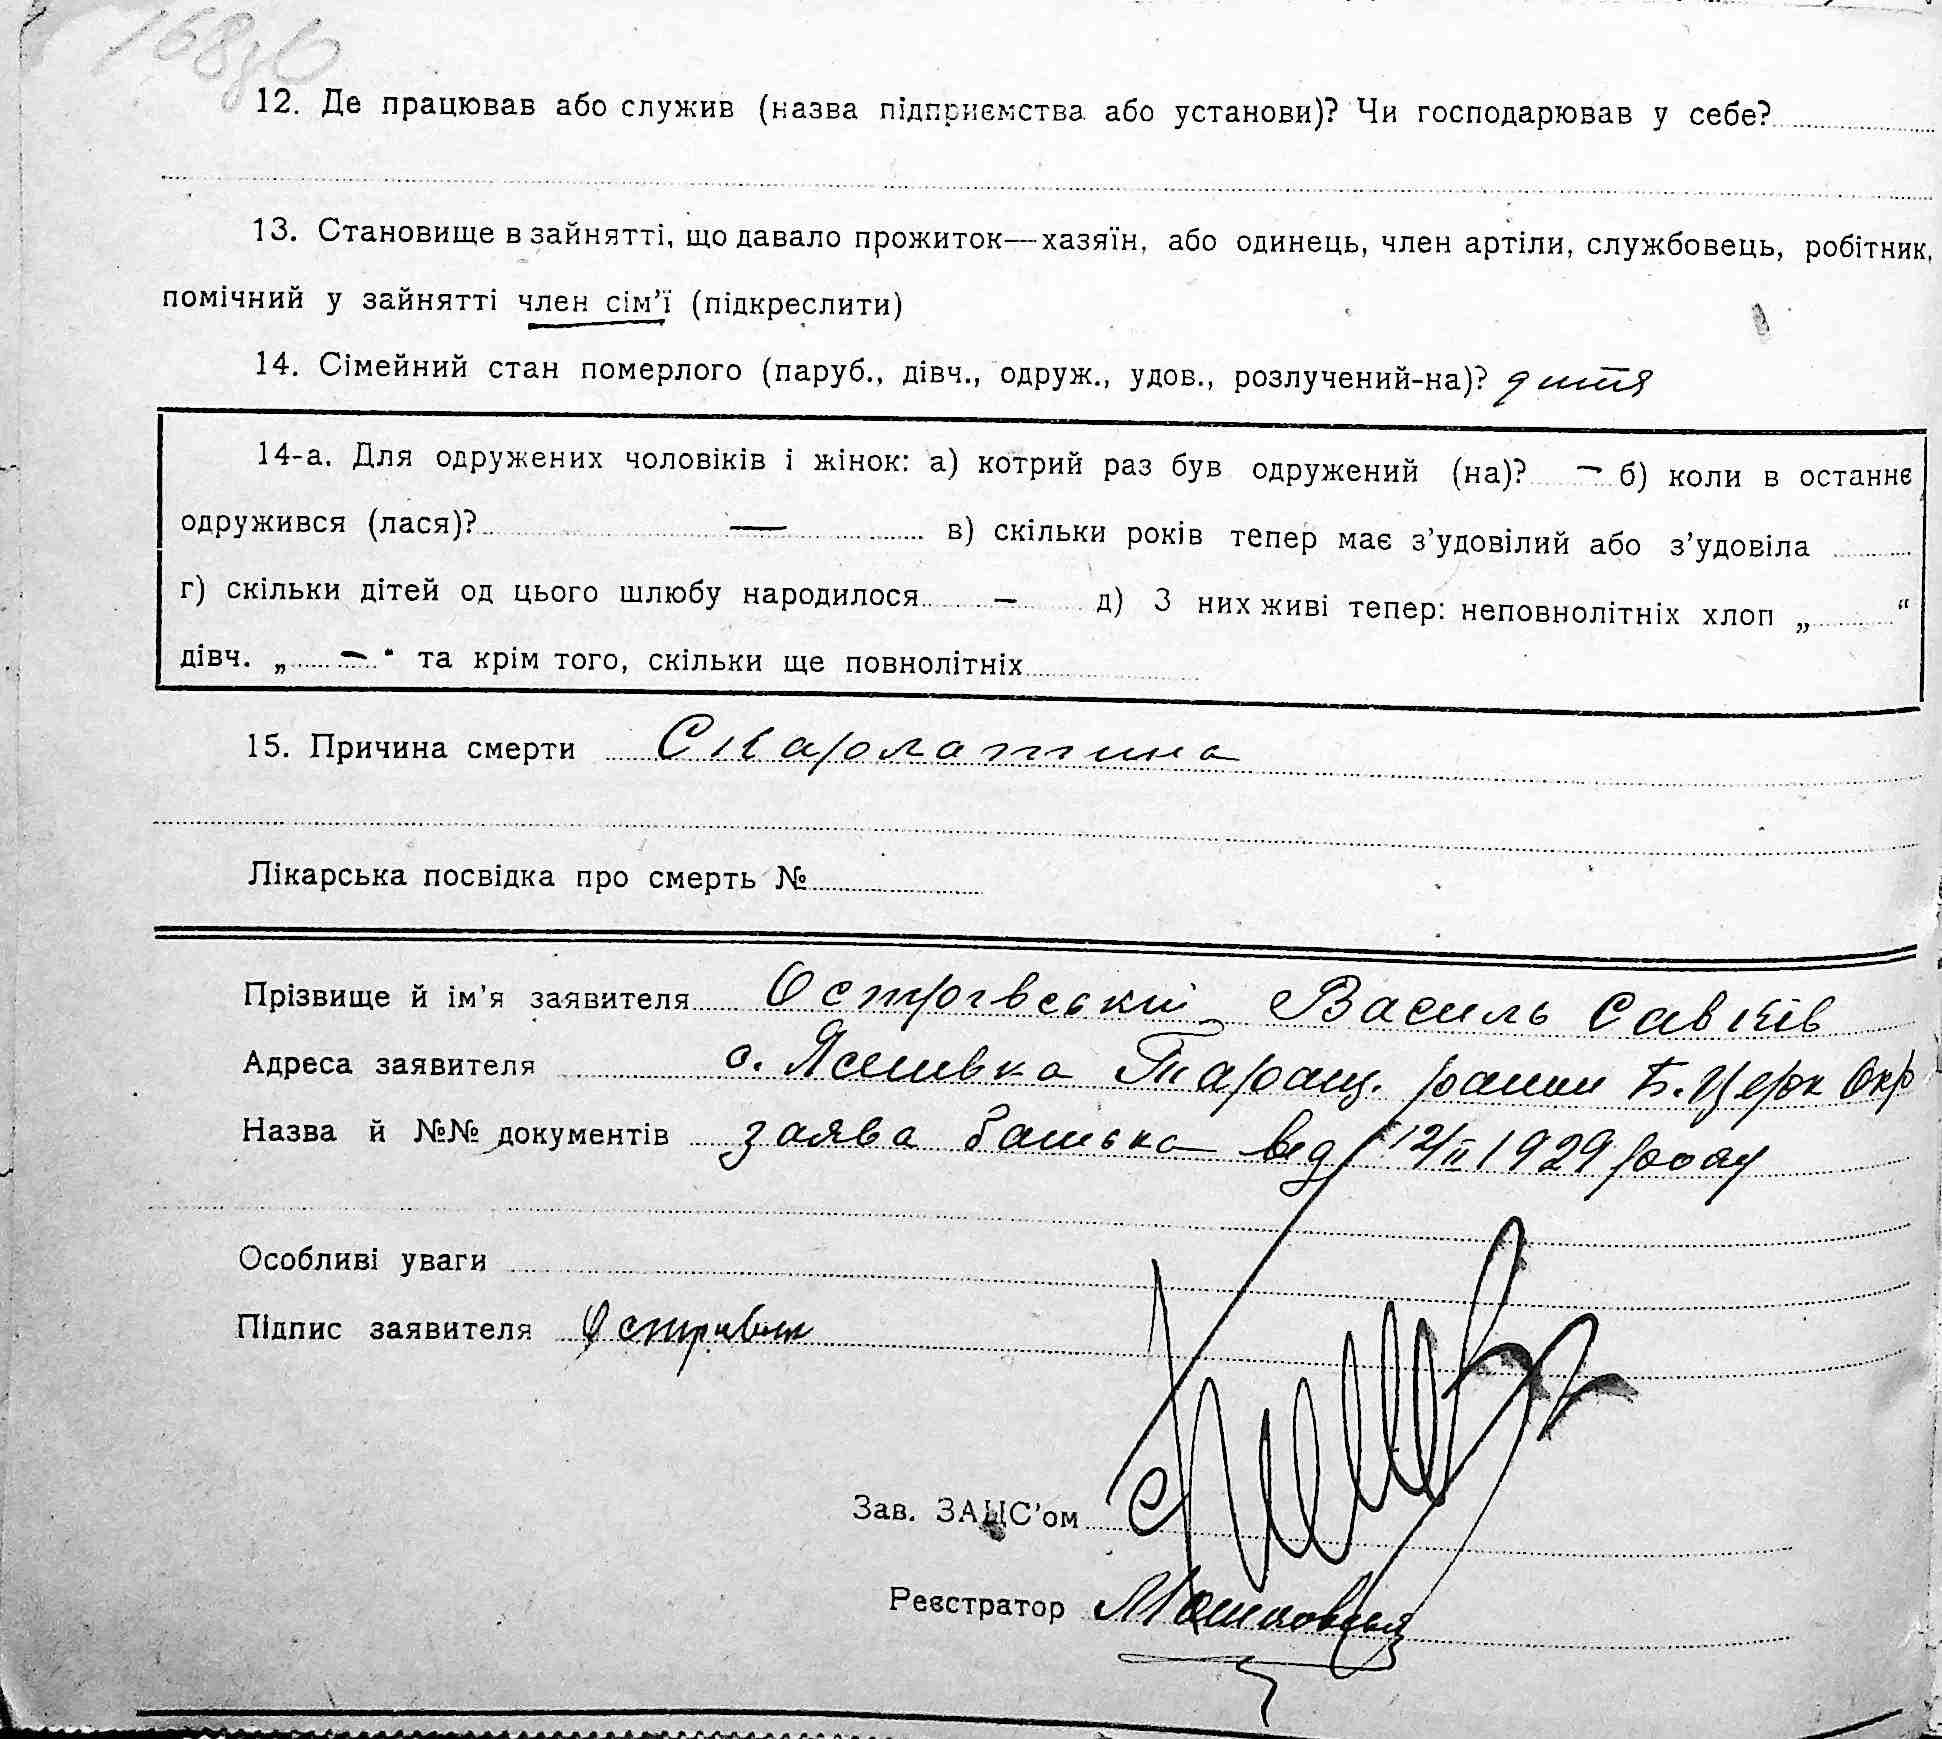 168зв
12. Де працював або служив (назва підприємства або установи)? Чи господарював у себе?
13. Становище в зайнятті, що давало прожиток—хазяїн, або одинець, член артіли, службовець, робітник,
помічний у зайнятті член сім’ї (підкреслити)
14. Сімейний стан померлого (паруб., дівч., одруж., удов., розлучений-на)? дитя
14-а. Для одружених чоловіків і жінок: а) котрий раз був одружений (на)? — б) коли в останнє
одружився (лася)? — в) скільки років тепер має з’удовілий або з’удовіла
г) скільки дітей од цього шлюбу народилося — д) З них живі тепер: неповнолітніх хлоп „ “
дівч. „ — “ та крім того, скільки ще повнолітніх
15. Причина смерти Скарлатина
Лікарська посвідка про смерть №
Прізвище й ім’я заявителя Острівській Василь Савків
Адреса заявителя с. Ясинівка Таращ. району Б. Церк Окр
Назва й №№ документів заява батька від 12/II 1929 року
Особливі уваги
Підпис заявителя
Зав. ЗАЦС’ом
Реєстратор